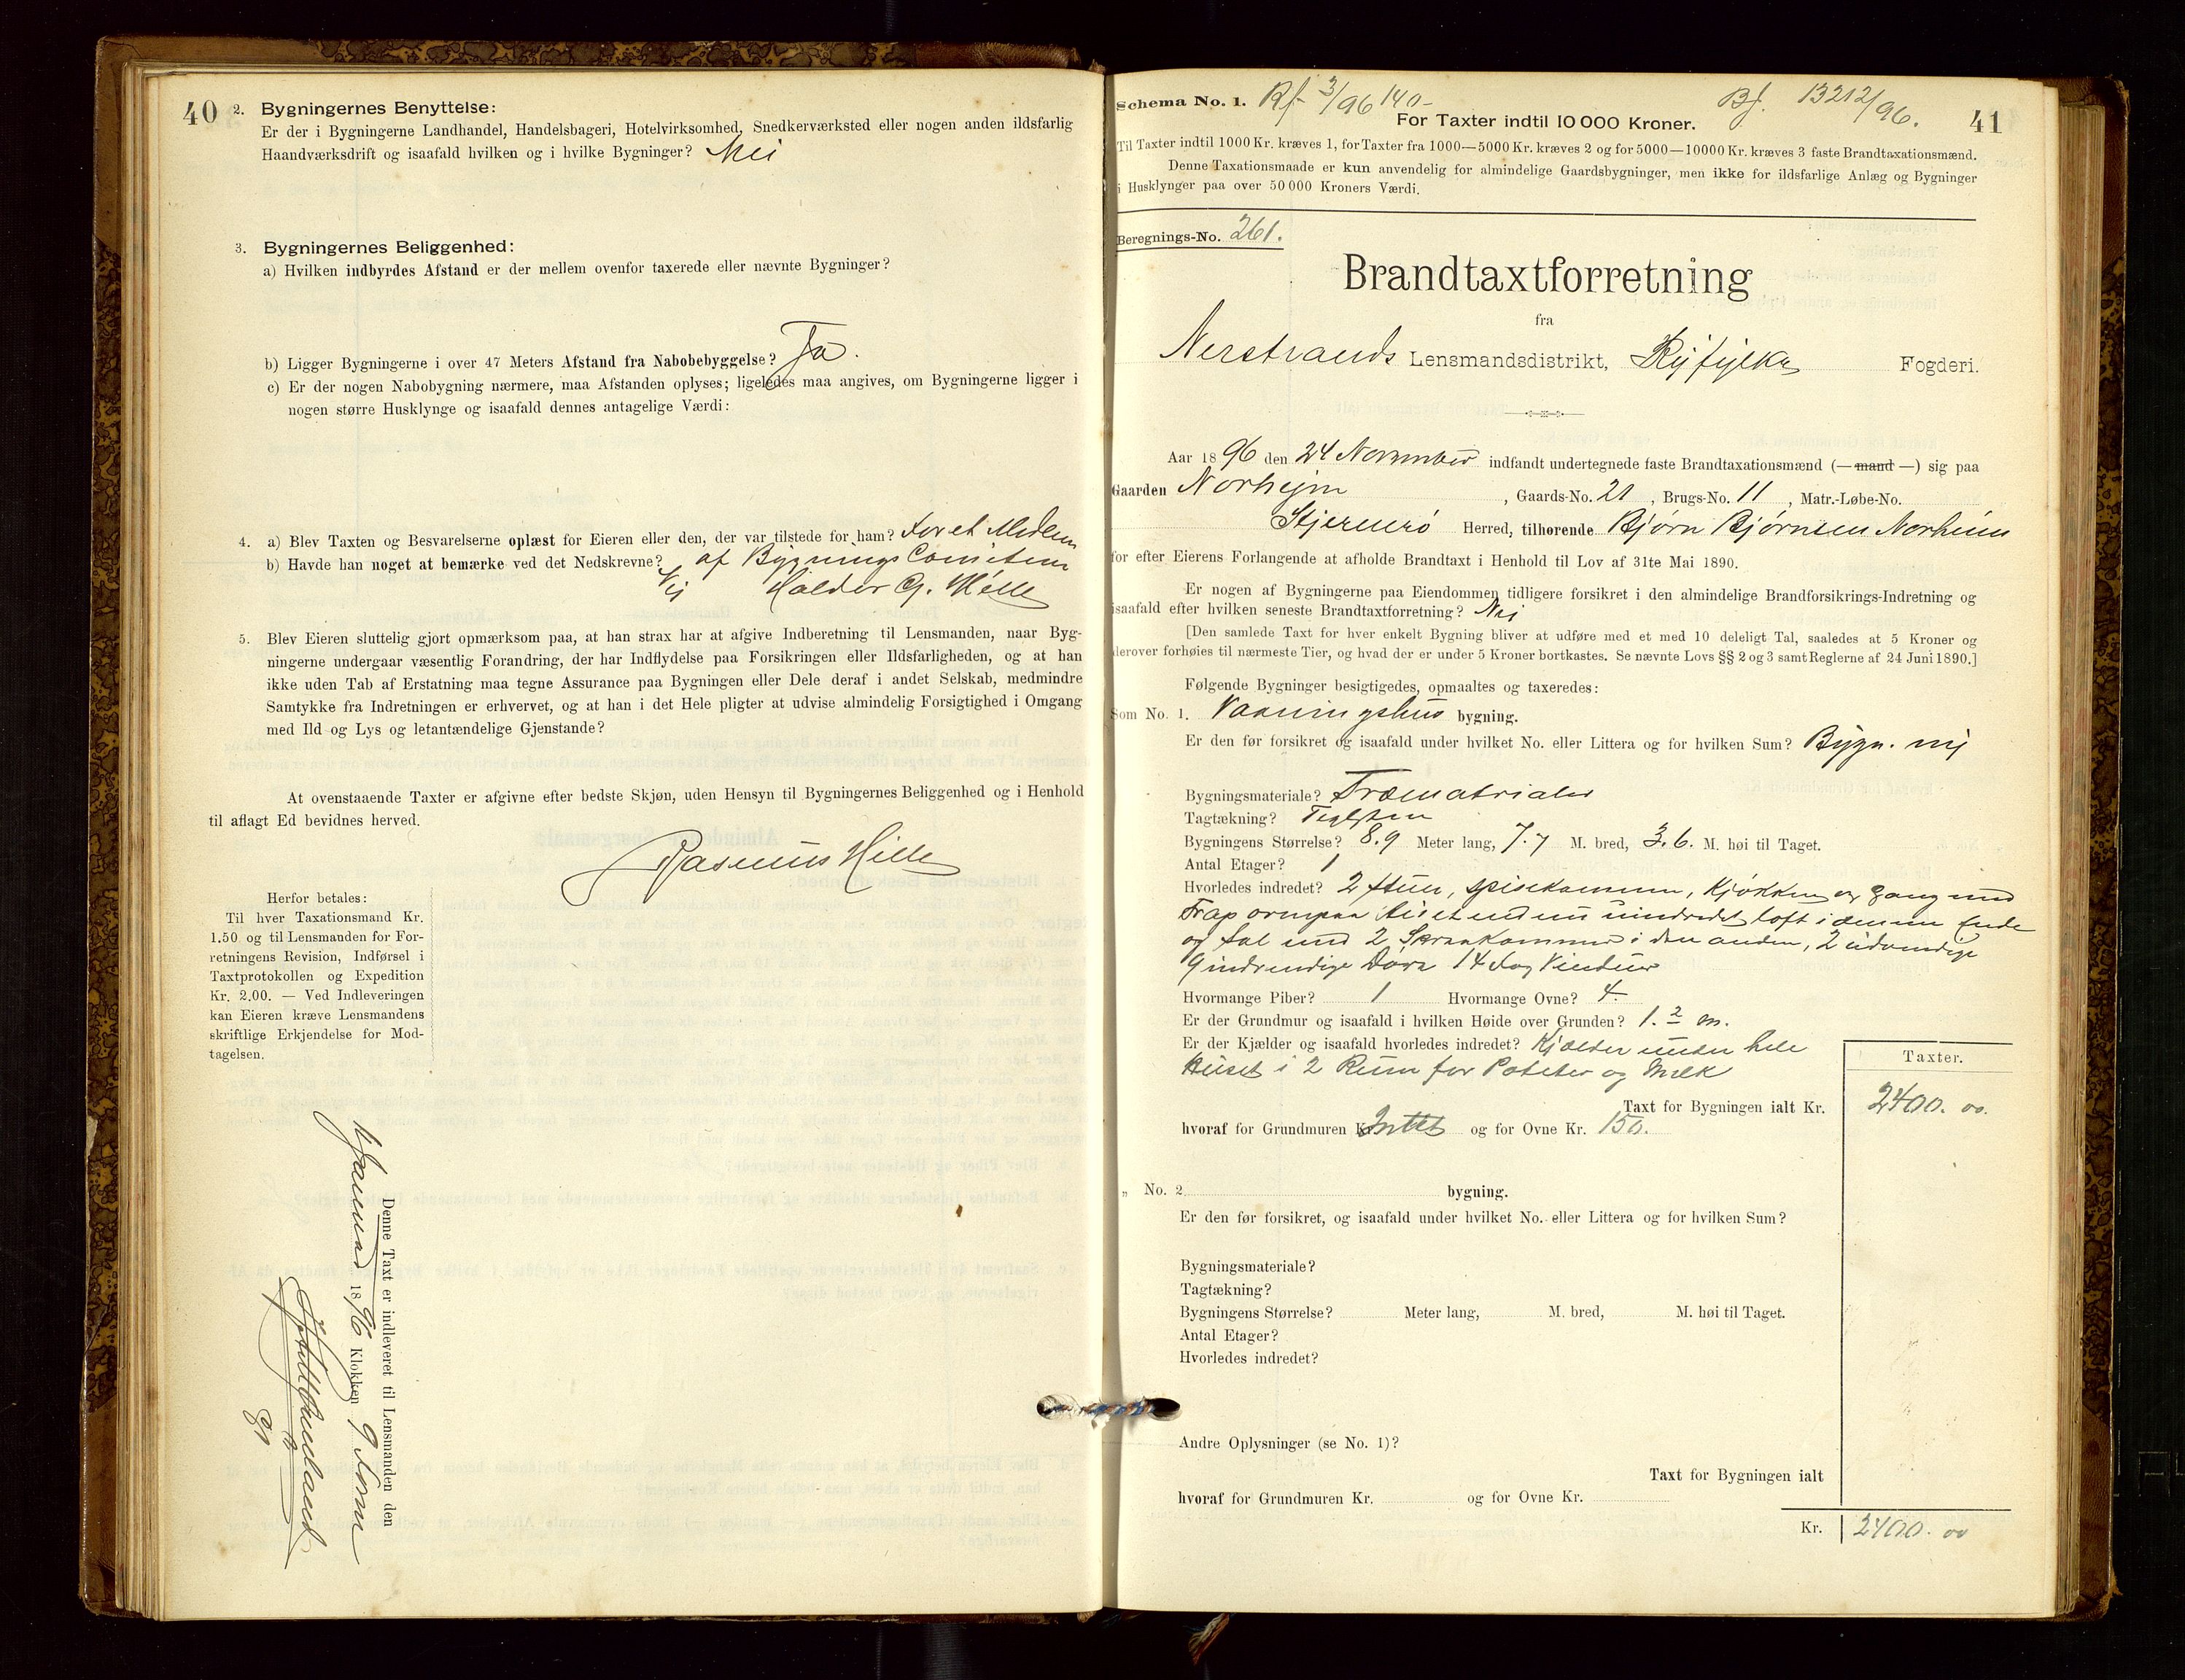 40
2. Bygningernes Benyttelse:
Er der i Bygningerne Landhandel, Handelsbageri, Hotelvirksomhed, Snedkerværksted eller nogen anden ildsfarlig
Haandværksdrift og isaafald hvilken og i hvilke Bygninger? Nei
3. Bygningernes Beliggenhed:
a) Hvilken indbyrdes Afstand er der mellem ovenfor taxerede eller nævnte Bygninger?
b) Ligger Bygningerne i over 47 Meters Afstand fra Nabobebyggelse? Ja.
c) Er der nogen Nabobygning nærmere, maa Afstanden oplyses; ligeledes maa angives, om Bygningerne ligger i
nogen større Husklynge og isaafald dennes antagelige Værdi:
4. a) Blev Taxten og Besvarelserne oplæst for Eieren eller den, der var tilstede for ham? For et Medlem
b) Havde han noget at bemærke ved det Nedskrevne? af Bygnings Comiteen
Nei Halder G. Hille
5. Blev Eieren sluttelig gjort opmærksom paa, at han strax har at afgive Indberetning til Lensmanden, naar Byg-
ningerne undergaar væsentlig Forandring, der har Indflydelse paa Forsikringen eller Ildsfarligheden, og at han
ikke uden Tab af Erstatning maa tegne Assurance paa Bygningen eller Dele deraf i andet Selskab, medmindre
Samtykke fra Indretningen er erhvervet, og at han i det Hele pligter at udvise almindelig Forsigtighed i Omgang
med Ild og Lys og letantændelige Gjenstande?
At ovenstaaende Taxter er afgivne efter bedste Skjøn, uden Hensyn til Bygningernes Beliggenhed og i Henhold
til aflagt Ed bevidnes herved.
Rasmus Hille
Herfor betales:
Til hver Taxationsmand Kr.
1.50 og til Lensmanden for For-
retningens Revision, Indførsel i
Taxtprotokollen og Expedition
Kr. 2.00. — Ved Indleveringen
kan Eieren kræve Lensmandens
skriftlige Erkjendelse for Mod-
tagelsen.
Denne Taxt er indleveret til Lensmanden den
Januar 1896 Klokken 9 Form
41
Schema No. 1. Rf. 3/96 140- Bf. 13212/96.
For Taxter indtil 10 000 Kroner.
Til Taxter indtil 1000 Kr. kræves 1, for Taxter fra 1000—5000 Kr. kræves 2 og for 5000—10000 Kr. kræves 3 faste Brandtaxationsmænd.
Denne Taxationsmaade er kun anvendelig for almindelige Gaardsbygninger, men ikke for ildsfarlige Anlæg og Bygninger
i Husklynger paa over 50 000 Kroners Værdi.
Beregnings-No. 261.
Brandtaxtforretning
fra
Nerstrands Lensmandsdistrikt, Ryfylke Fogderi.
Aar 1896 den 24 November indfandt undertegnede faste Brandtaxationsmænd (—mand—) sig paa
Gaarden Norhejm, Gaards-No. 21, Brugs-No. 11, Matr.-Løbe-No.
Stjernerö Herred, tilhørende Bjørn Bjørnsen Norheim
for efter Eierens Forlangende at afholde Brandtaxt i Henhold til Lov af 31te Mai 1890.
Er nogen af Bygningerne paa Eiendommen tidligere forsikret i den almindelige Brandforsikrings-Indretning og
isaafald efter hvilken seneste Brandtaxtforretning? Nei
[Den samlede Taxt for hver enkelt Bygning bliver at udføre med et med 10 deleligt Tal, saaledes at 5 Kroner og
derover forhøies til nærmeste Tier, og hvad der er under 5 Kroner bortkastes. Se nævnte Lovs §§ 2 og 3 samt Reglerne af 24 Juni 1890.]
Følgende Bygninger besigtigedes, opmaaltes og taxeredes:
Som No. 1. Vaaningshus bygning.
Er den før forsikret og isaafald under hvilket No. eller Littera og for hvilken Sum? Bygn. nij
Bygningsmateriale? Træmatrialer
Tagtækning? Teglsten
Bygningens Størrelse? 8.9 Meter lang, 7.7 M. bred, 3.6. M. høi til Taget.
Antal Etager? 1
Hvorledes indredet? 2 stuer, spisekammer, Kjøkken og gang med
Trap ovenpaa Huset uindredet loft i denne Ende
og Sal med 2 Skraakammer i den anden, 2 udvendige
9 indvendige Döre 14 Fag Vinduer
Hvormange Piber? 1 Hvormange Ovne? 4.
Er der Grundmur og isaafald i hvilken Høide over Grunden? 1.2 m.
Er der Kjælder og isaafald hvorledes indredet? Kjælder under hele
Huset i 2 Rum for Poteter og Melk
Taxter.
Taxt for Bygningen ialt Kr. 2400. 00.
hvoraf for Grundmuren Kr. Intet og for Ovne Kr. 150.
„ No. 2 bygning.
Er den før forsikret, og isaafald under hvilket No. eller Littera og for hvilken Sum?
Bygningsmateriale?
Tagtækning?
Bygningens Størrelse? Meter lang, M. bred, M. høi til Taget.
Antal Etager?
Hvorledes indredet?
Andre Oplysninger (se No. 1)?
Taxt for Bygningen ialt
hvoraf for Grundmuren Kr. og for Ovne Kr.
Kr. 2400. 00